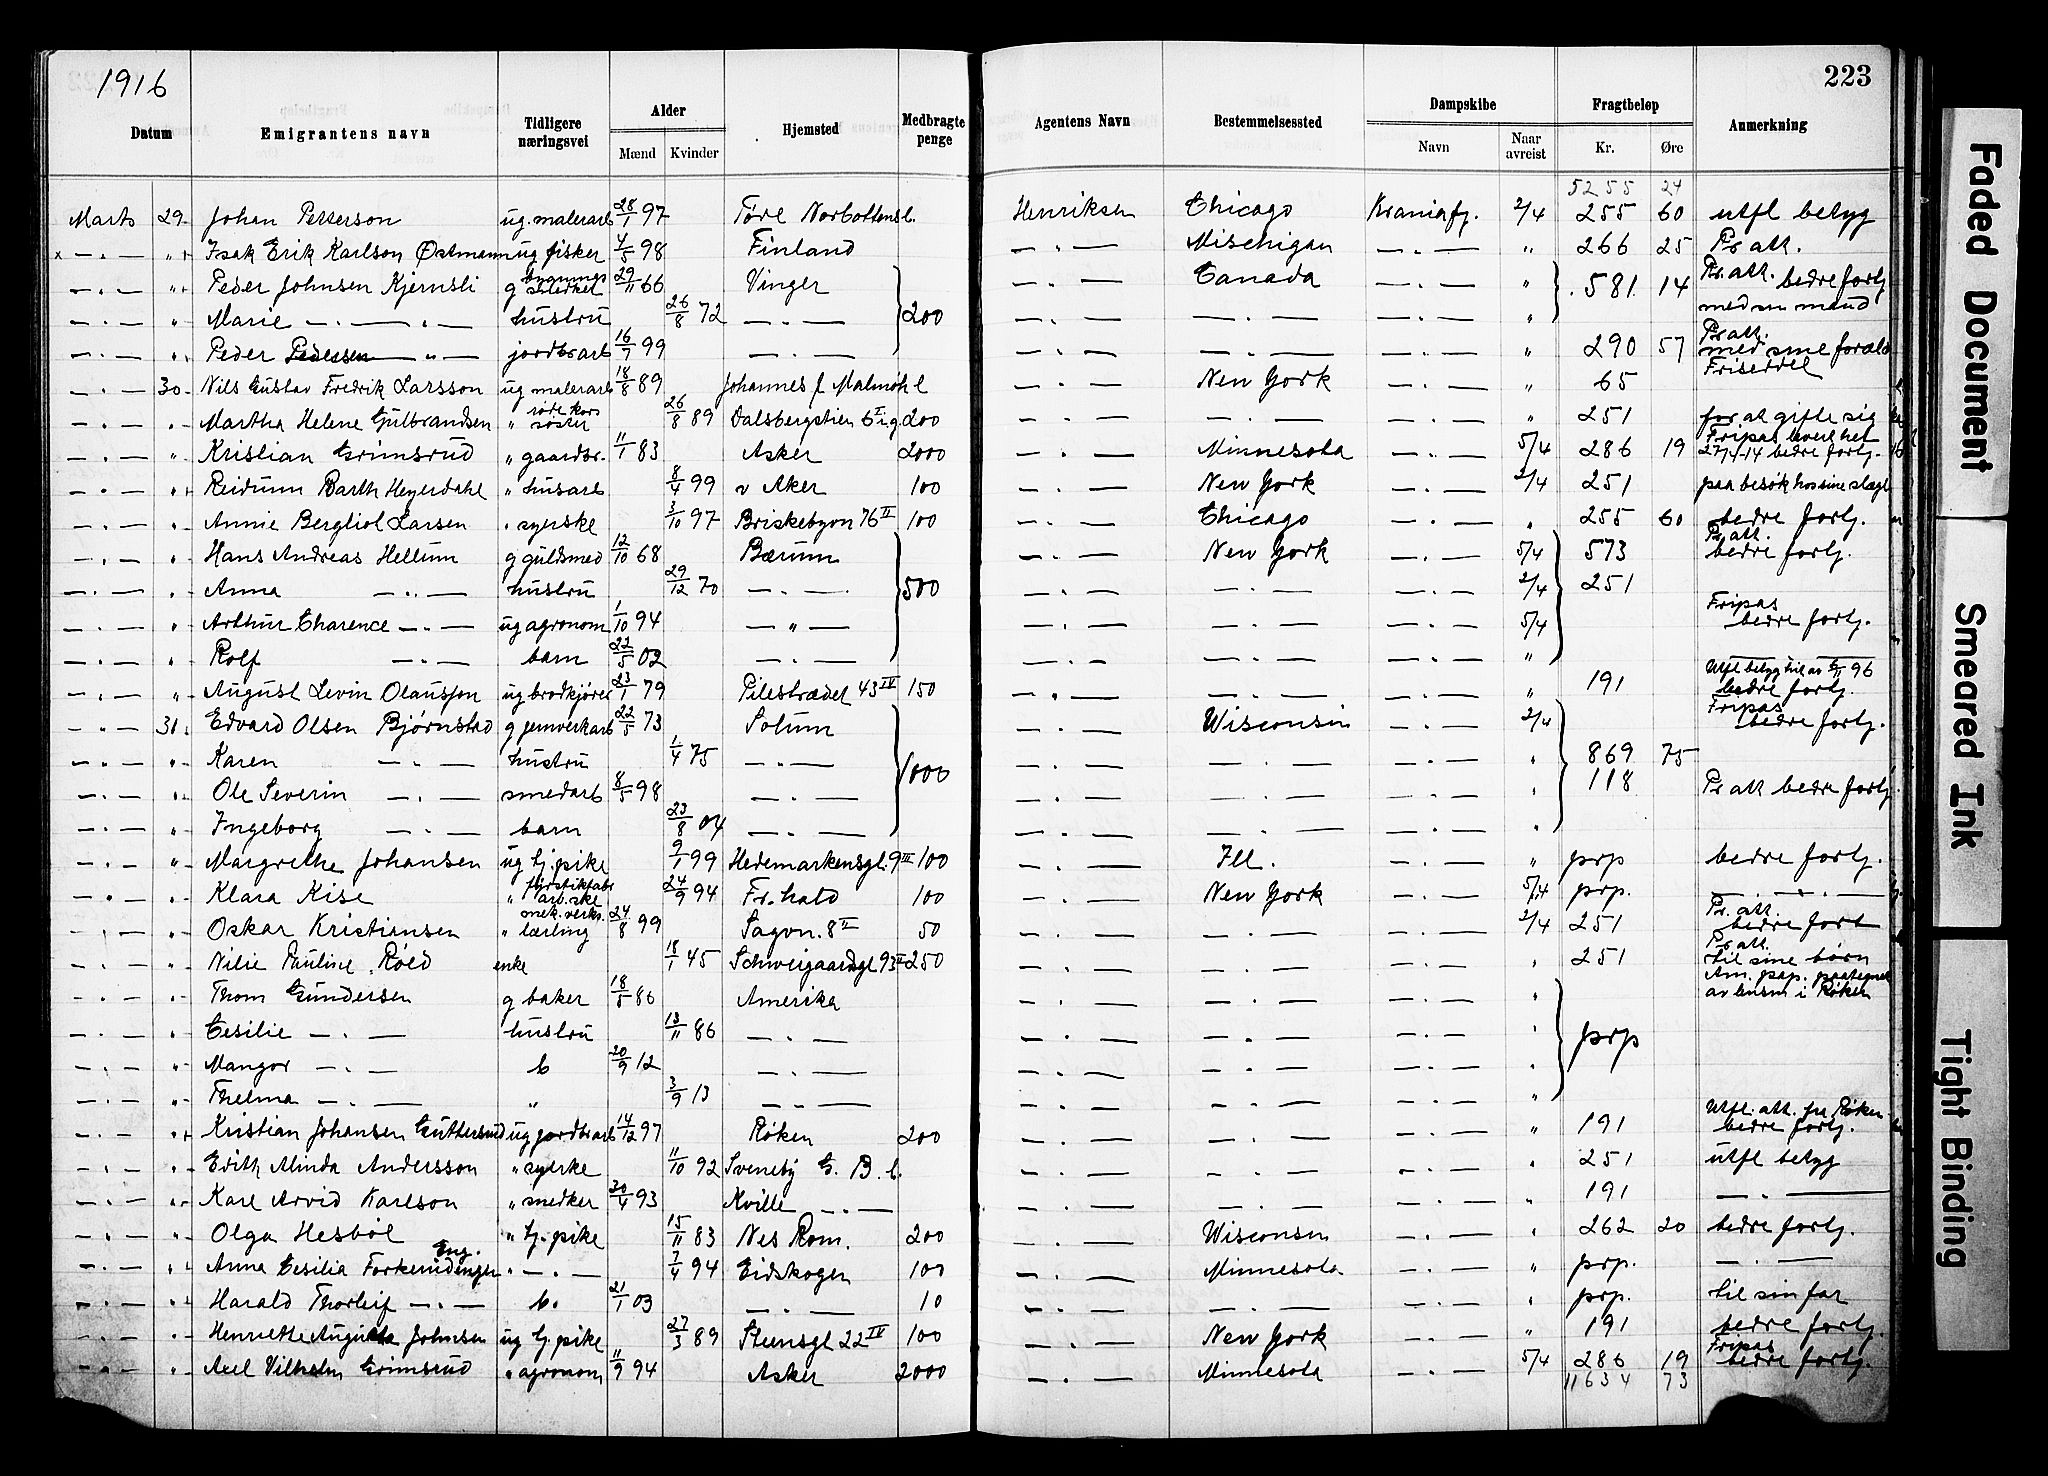 1916
223
Datum | Emigrantens navn | Tidligere næringsvei | Alder Mænd Kvinder | Hjemsted | Medbragte penge | Agentens Navn | Bestemmelsessted | Dampskibe Navn Naar avreist | Fragtbeløp Kr. Øre | Anmerkning
5255 24
Marts 29. Johan Petterson ug. malerarb 28/1 97 Töre Norbottensl. Henriksen Chicago Kraniafj. 2/4 255 60 utfl betyg
x — . — " Isak Erik Karlson Østmann ug fisker 4/5 98 Finland — . — Mischigan — . — " 266 25 Pr att.
— . — " Peder Johnsen Kjernsli g bygnings snedker 29/11 66 Vinger — . — Canada — . — " 581 14 Pr. att. bedre fortj
— . — " Marie — . — " — hustru 26/8 72 — . — 200 — . — — . — — . — " med sin mand
— . — " Peder Pedersen — " — jordbrarb 16/7 99 — . — — . — — . — — . — " 290 57 Pr att. med sine foræld
— . — 30. Nils Gustav Fredrik Larsson ug malerarb 18/8 89 Johannes f Malmøh l — . — New York — . — " 65 Friseddel
— . — " Martha Helene Gulbrandsen " røde kors søster 26/8 89 Dalsbergstien 6 I ig. 200 — . — — . — — . — " 251 for at gifte sig
— . — " Kristian Grimsrud " gaardbr. 11/1 83 Asker 2000 — . — Minnesota — . — 5/4 286 19 Fripas bedre fortj.
— . — " Reidunn Barth Heyerdahl " husarb 8/4 99 v Aker 100 — . — New York — . — 2/4 251 paa besøk hos sine slægt
— . — " Annie Bergliot Larsen " syerske 3/10 97 Briskebyvn 76 II 100 — . — Chicago — . — " 255 60 bedre fortj.
— . — " Hans Andreas Hellum g guldsmed 12/10 68 Bærum — . — New York — . — 5/4 573 Pr att. bedre fortj.
— . — " Anna — . — hustru 29/12 70 — . — 500 — . — — . — — . — 2/4 251
— . — " Arthur Charence — . — ug agronom 1/10 94 — " — — . — — . — — . — 5/4 Fripas bedre fortj.
— . — " Rolf — . — barn 22/5 02 — . — — . — — . — — . — "
— . — " August Levin Olausson ug brødkjører 23/1 79 Pilestrædet 43 IV 150 — . — — . — — . — " 191 Utfl betyg 96 bedre fortj.
— . — 31. Edvard Olsen Bjørnstad g jernverkarb 22/5 73 Solum — . — Wisconsin — . — 2/4 Fripas bedre fortj.
— . — " Karen — . — hustru 1/4 75 — . — 1000 — . — — . — — . — " 869 75
— . — " Ole Severin — . — smedarb 8/5 98 — . — — . — — . — — . — " 118 Pr att bedre fortj
— . — " Ingeborg — . — barn 23/8 04 — . — — . — — . — — . — "
— . — " Margrethe Johansen ug tj. pike 9/1 99 Hedemarkensgt. 9 III 100 — . — Ill. — . — " prp bedre fortj.
— . — " Klara Kise " fyrstikfabr arb.ske 24/9 94 Fr.hald 100 — . — New York — . — 5/4 prp. — . — . —
— . — " Oskar Kristiansen " mek. verks. lærling 24/8 99 Sagvn. 8 II 50 — . — — . — — . — 2/4 251 Pr. att. bedre fort
— . — " Nilie Pauline Røed enke 18/1 45 Schweigaardsgt 93 II 250 — . — — . — — . — " 251 Pr att. til sine børn
— . — " Thom Gundersen g baker 18/5 86 Amerika — . — — . — — . — " Am. pap. paategnet av lensm i Røken
— . — " Cesilie — . — hustru 13/11 86 — . — — . — — . — — . — " prp
— . — " Mangor — . — b 20/9 12 — . — — . — — . — — . — "
— . — " Thelma — . — " 3/9 13 — . — — . — — . — — . — "
— . — " Kristian Johansen Guttersrud ug jordbrarb 14/12 97 Røken 200 — . — — . — — . — " 191 Utfl. att. fr Røken bedre fortj.
— . — " Edith Alinda Andersson " syerske 11/10 92 Sveneby G. B. l. — . — — . — — . — " 251 utfl betyg
— . — " Karl Arvid Karlson " snedker 30/4 93 Kville — . — — . — — . — — . — " 191 — . —
— . — " Olga Hesbøl " tj. pike 15/11 83 Nes Rom. 200 — . — Wisconsin — . — " 262 20 bedre fortj.
— . — " Anna Cesilia Eng. " — . — 7/4 94 Eidskogen 100 — . — Minnesota — . — " prp. — . —
— . — " Harald Thorleif — . — b. 21/1 03 — . — 10 — . — — . — — . — " prp. til sin far
— . — " Henriette Augusta Johnsen ug tj. pike 27/3 89 Steensgt 22 IV 100 — . — New York — . — " 191 bedre fortj.
— . — " Axel Vilhelm Grimsrud " agronom 11/9 94 Asker 2000 — . — Minnesota — . — 5/4 286 19 Fripas bedre fortj.
11634 73
Faded Document
Smeared Ink
Tight Binding